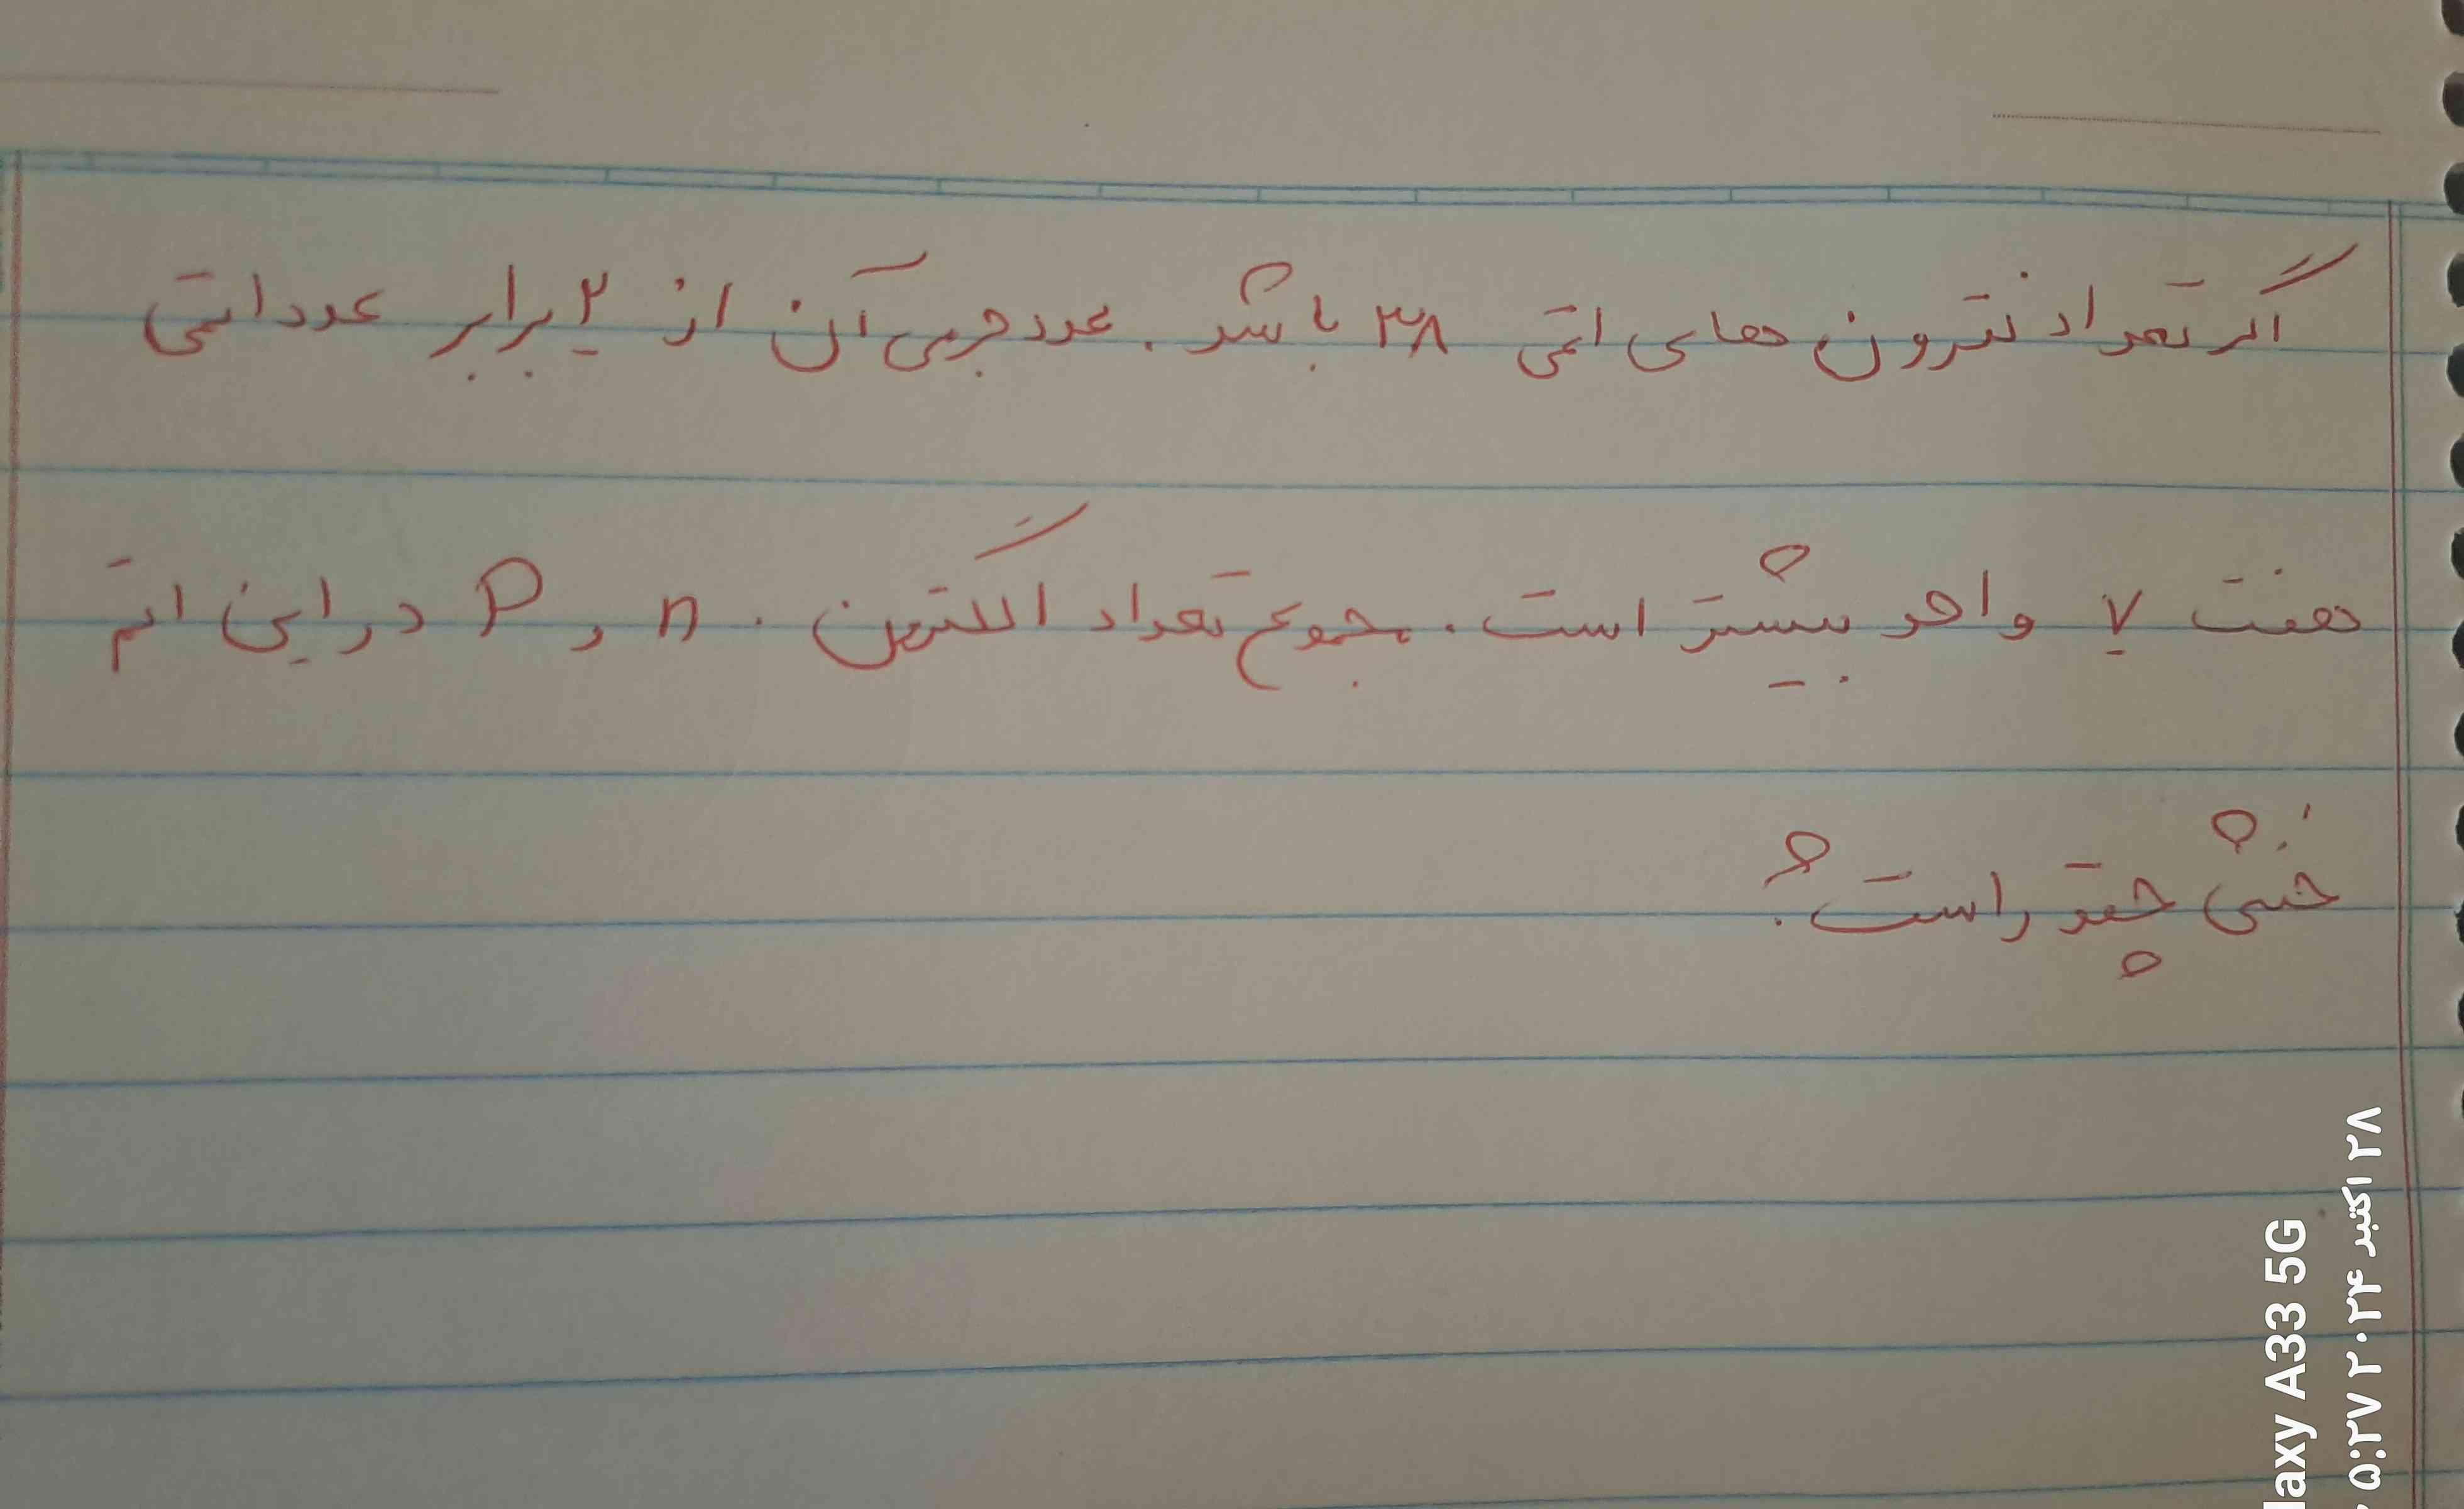 اگر تعداد نترون های اتمی ۳۸ باشد. عدد جرمی آن از ۲ برابر عدد اتمی
هفت ۷ واحد بیشتر است. مجموع تعداد الکترون . n و P در این اتم
خنثی چقدر است؟
laxy A33 5G
۲۸ اکتبر ۲۰۲۴ ۵:۲۷